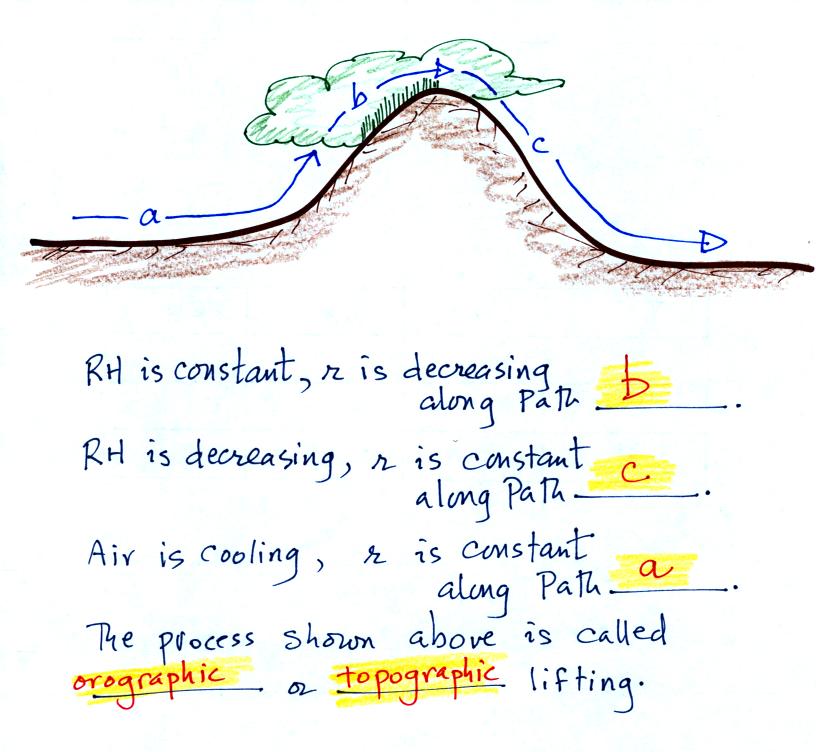 b
c
a
RH is constant, r is decreasing
along Path b.
RH is decreasing, r is constant
along Path c.
Air is cooling, r is constant
along Path a.
The process shown above is called
orographic or topographic lifting.